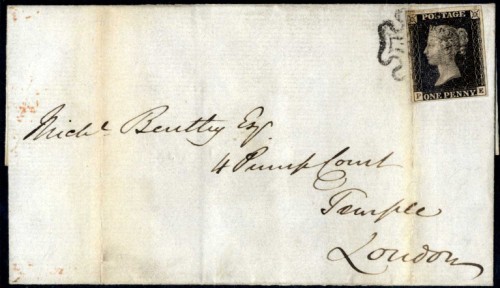 POSTAGE
ONE PENNY
Mich.l Bentley Esq.
4 Pump Court
Temple
London